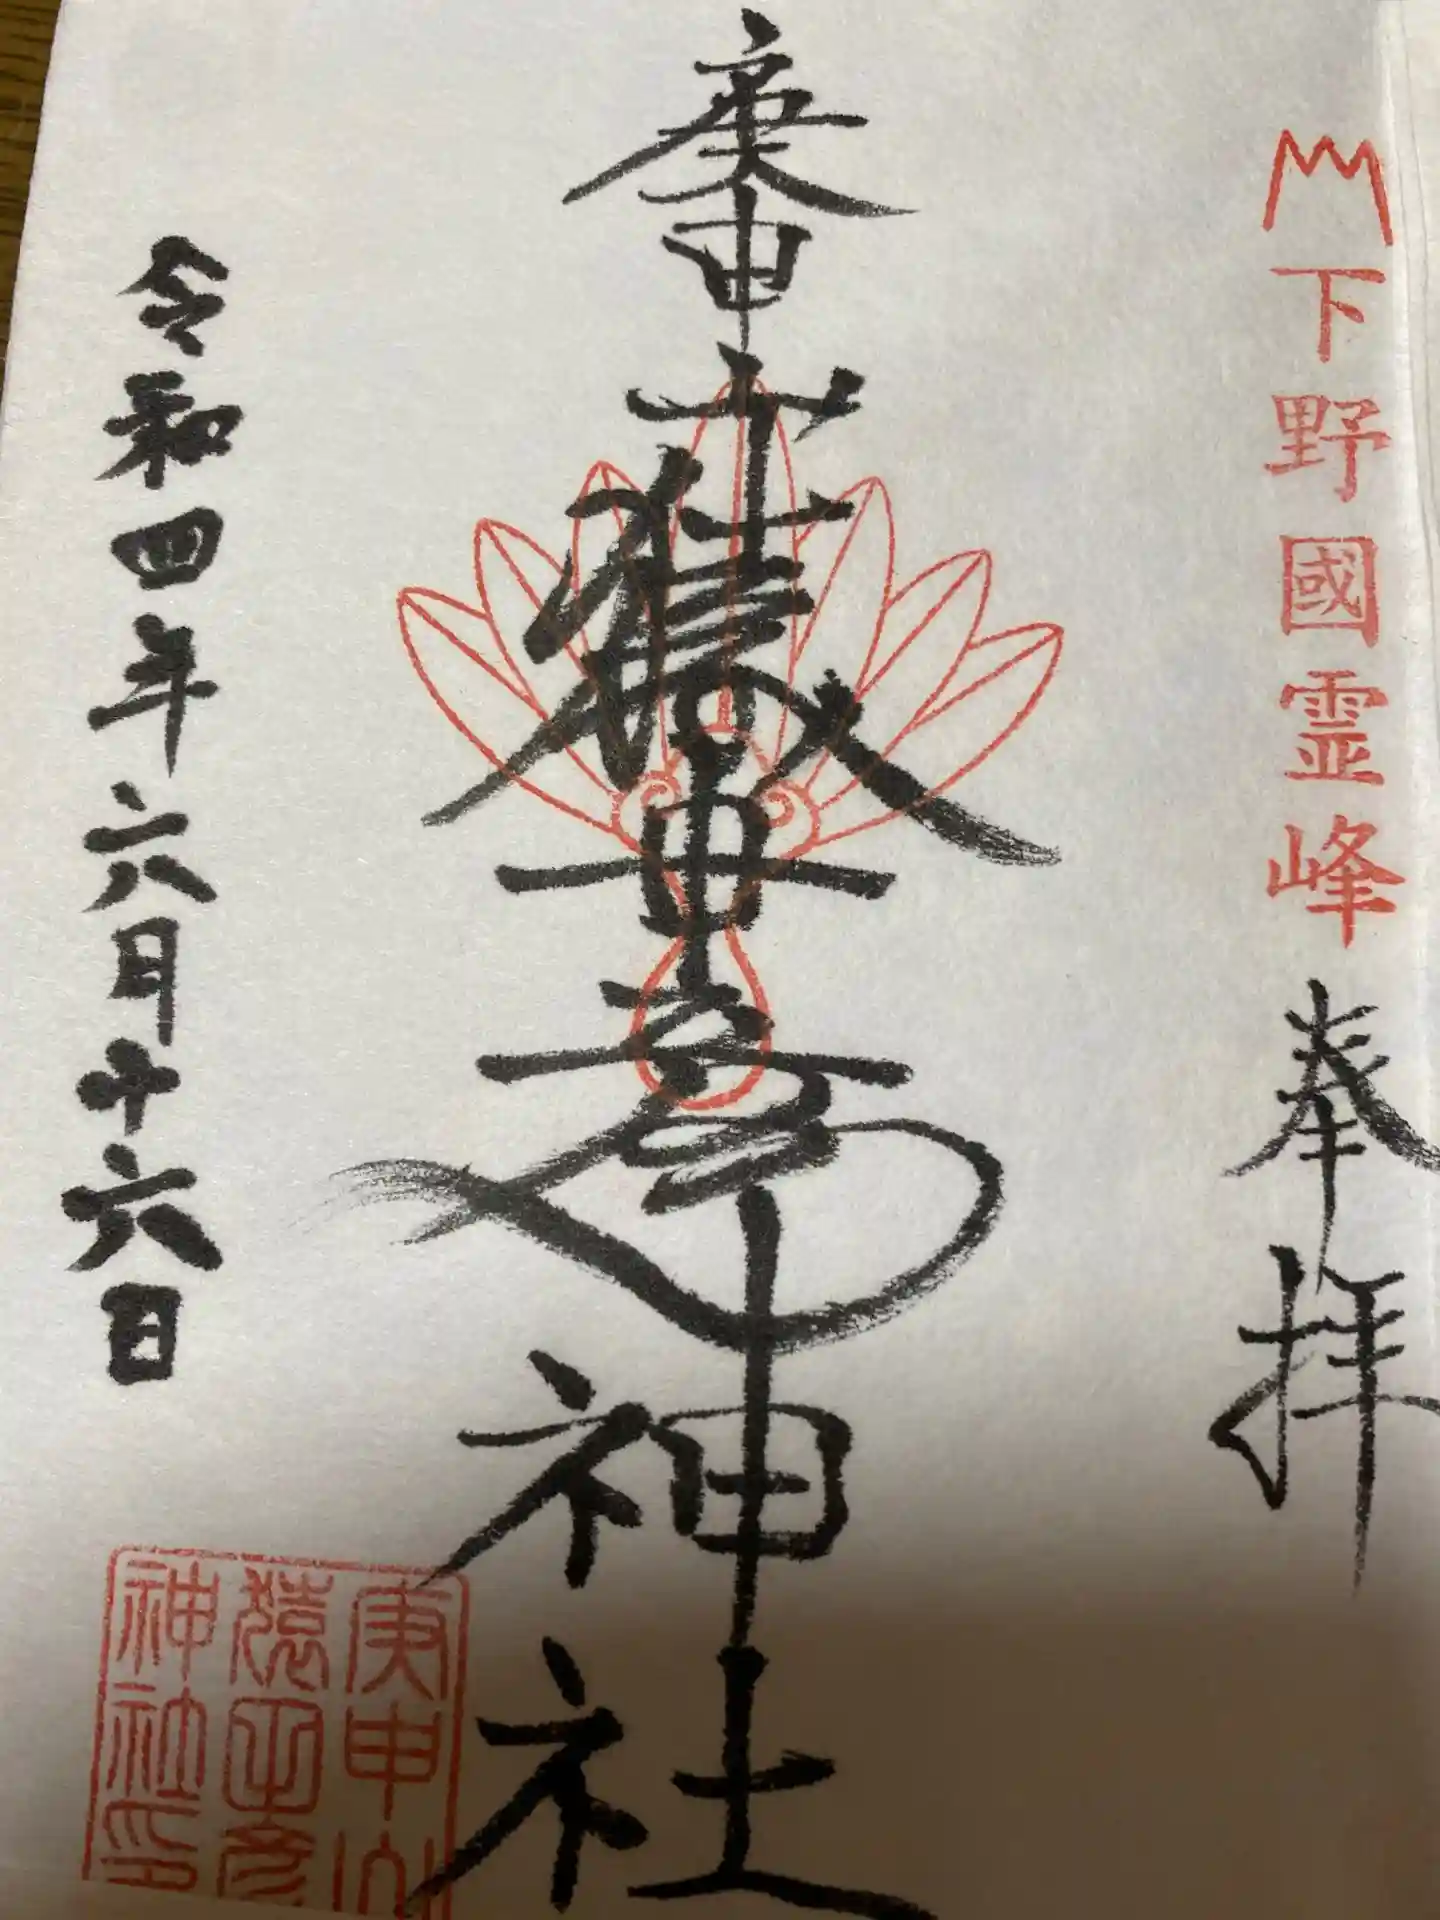 下野國霊峰
奉拝
庚申山
猿田彦
神社
令和四年六月十六日
庚申山
猿田彦
神社印